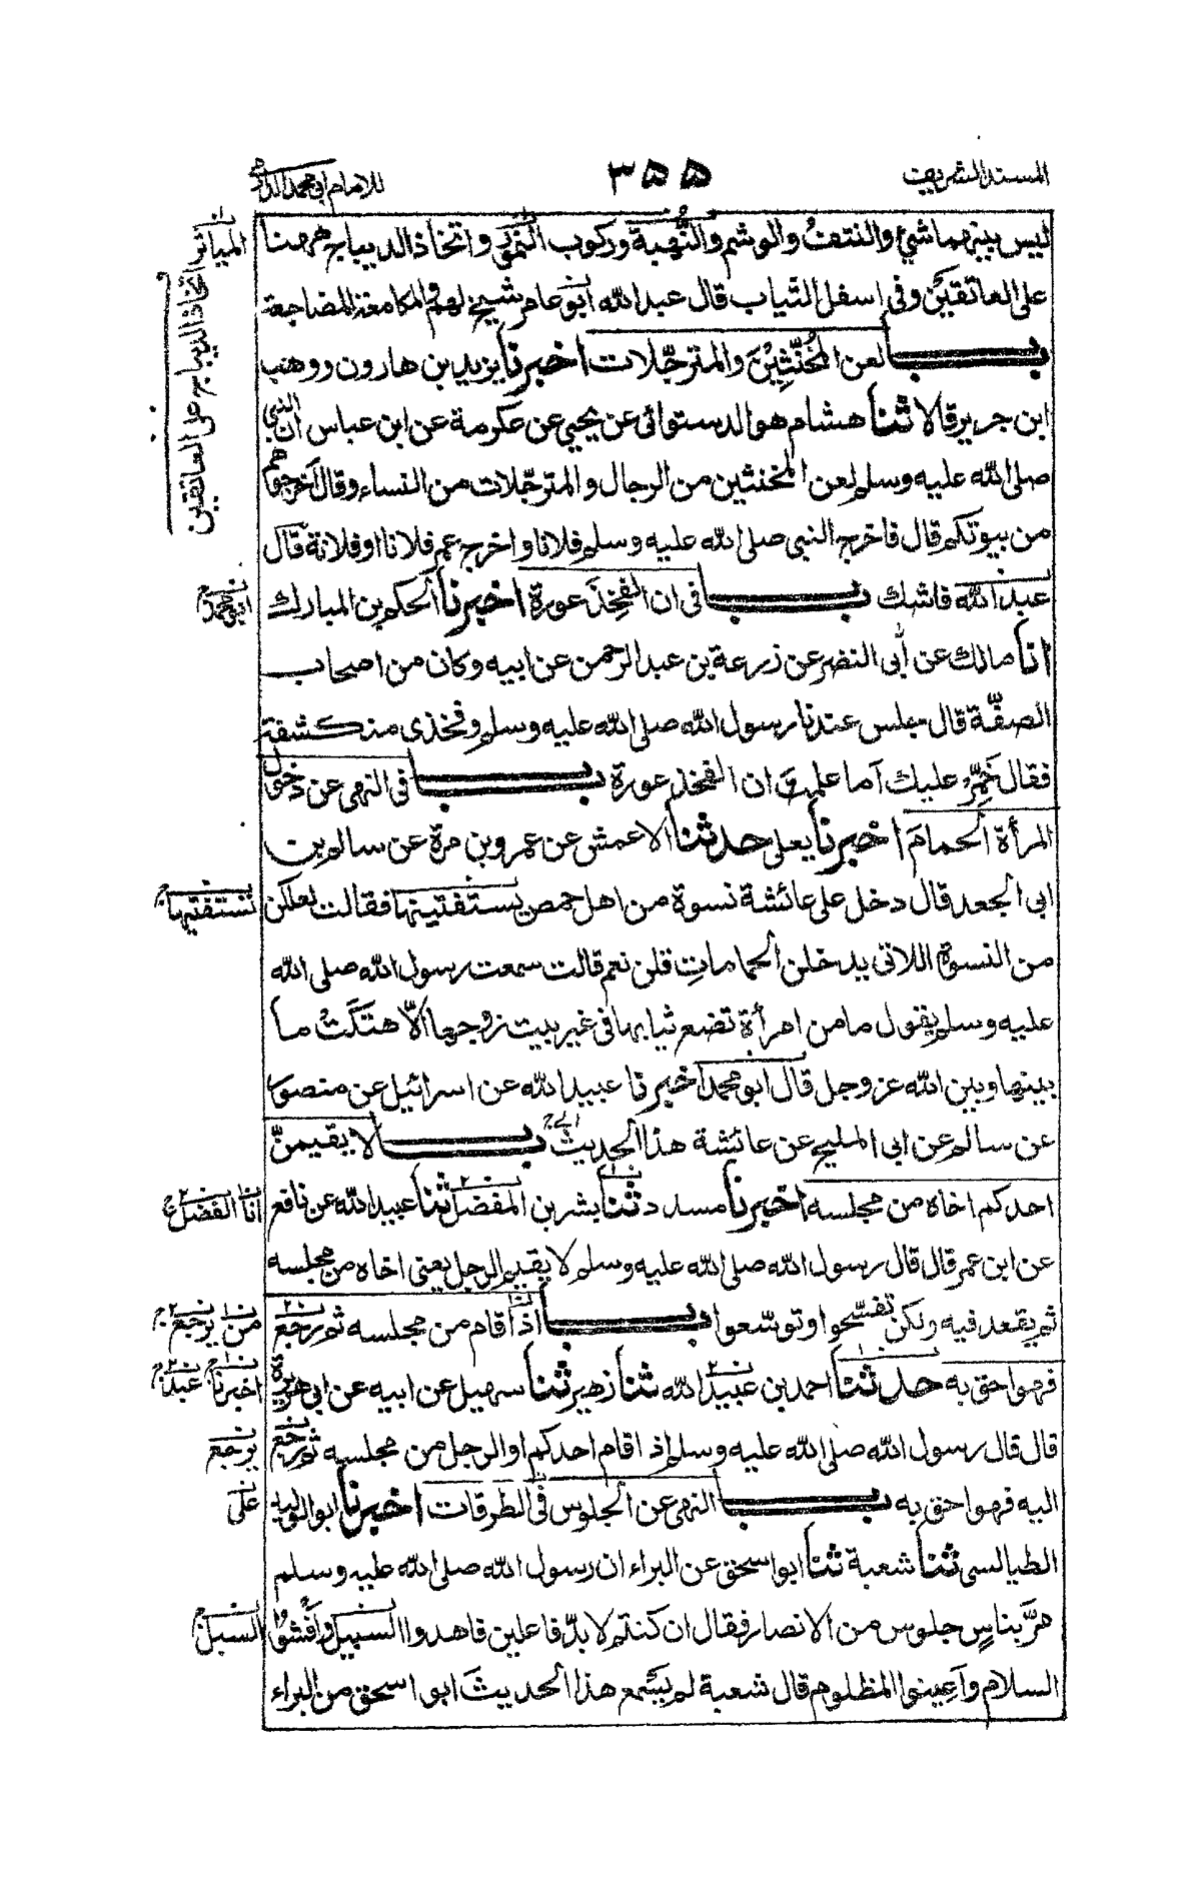 المسند الشريف ٣٥٥ للامام ابی محمد الدارمی
ليس بينهما شیء والنتف والوشم والنُّهبة وركوب النمور واتخاذ الديباج ههنا
على العاتقين وفی اسفل الثياب قال عبد الله ابو عامر شيخ لهم والمكامعة المضاجعة
بـــاب لعن المُخَنَّثِيْنَ والمترجّلات اخبرنا يزيد بن هارون ووهب
ابن جرير قالا ثنا هشام هو الدستوائی عن يحيی عن عكرمة عن ابن عباس ان النبی
صلى الله عليه وسلم لعن المخنثين من الرجال والمترجّلات من النساء وقال اخرجوهم
من بيوتكم قال فاخرج النبی صلى الله عليه وسلم فلانا واخرج عمر فلانا او فلانة قال
عبد الله فاشك بـــاب فی ان الفَخِذَ عورة اخبرنا الحكم بن المبارك
انا مالك عن أبی النضر عن زرعة بن عبد الرحمن عن ابيه وكان من اصحاب
الصفّة قال جلس عندنا رسول الله صلى الله عليه وسلم وفخذی منكشفة
فقال خَمِّرْ عليك اما علمتَ ان الفخذ عورة بـــاب فی النهی عن دخول
المرأة الحمامَ اخبرنا يعلى حدثنا الاعمش عن عمرو بن مرة عن سالم بن
ابی الجعد قال دخل على عائشة نسوة من اهل حمص يستفتينها فقالت لعلكن
من النسوة اللاتی يدخلن الحماماتِ قلن نعم قالت سمعت رسول الله صلى الله
عليه وسلم يقول ما من امرأة تضع ثيابها فی غير بيت زوجها الّا هَتَكَتْ ما
بينها وبين الله عز وجل قال ابو محمد اخبرنا عبيد الله عن اسرائيل عن منصور
عن سالم عن ابی المليح عن عائشة هذا الحديث بـــاب لا يقيمنّ
احدكم اخاه من مجلسه اخبرنا مسدد ثنا بشر بن المفضل ثنا عبيد الله عن نافع
عن ابن عمر قال قال رسول الله صلى الله عليه وسلم لا يقيم الرجل يعنی اخاه من مجلسه
ثم يقعد فيه ولكن تفسّحوا وتوسّعوا بـــاب اذا قام من مجلسه ثم رجع
فهو احق به حدثنا احمد بن عبيد الله ثنا زهير ثنا سهيل عن ابيه عن ابی هريرة
قال قال رسول الله صلى الله عليه وسلم اذا قام احدكم او الرجل من مجلسه ثم رجع
اليه فهو احق به بـــاب النهی عن الجلوس فی الطرقات اخبرنا ابو الوليد
الطيالسی ثنا شعبة ثنا ابو اسحق عن البراء ان رسول الله صلى الله عليه وسلم
مرَّ بناسٍ جلوس من الانصار فقال ان كنتم لا بدّ فاعلين فاهدوا السبيل وَاَفْشُوا
السلام وَاَعِينوا المظلوم قال شعبة لم يسمع هذا الحديثَ ابو اسحق من البراء
المياثر
اتخاذ الديباج على العاتقين
ابو محمد
تستفتيها
انا الفضل
من يرجع
اخبرنا عبد
يرجع
على
السبل